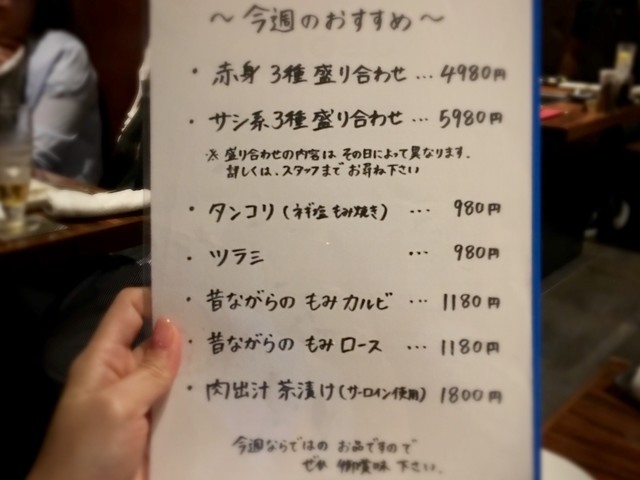 ～今週のおすすめ～
・赤身 3種盛り合わせ … 4980円
・サシ系3種盛り合わせ … 5980円
※ 盛り合わせの内容は その日によって異なります.
詳しくは、スタッフまで お尋ね下さい
・タンコリ (ネギ塩 もみ焼き) … 980円
・ツラミ … 980円
・昔ながらの もみ カルビ … 1180円
・昔ながらの もみ ロース … 1180円
・肉出汁 茶漬け (サーロイン使用) 1800円
今週ならではの お品ですので
ぜひ 御賞味 下さい.